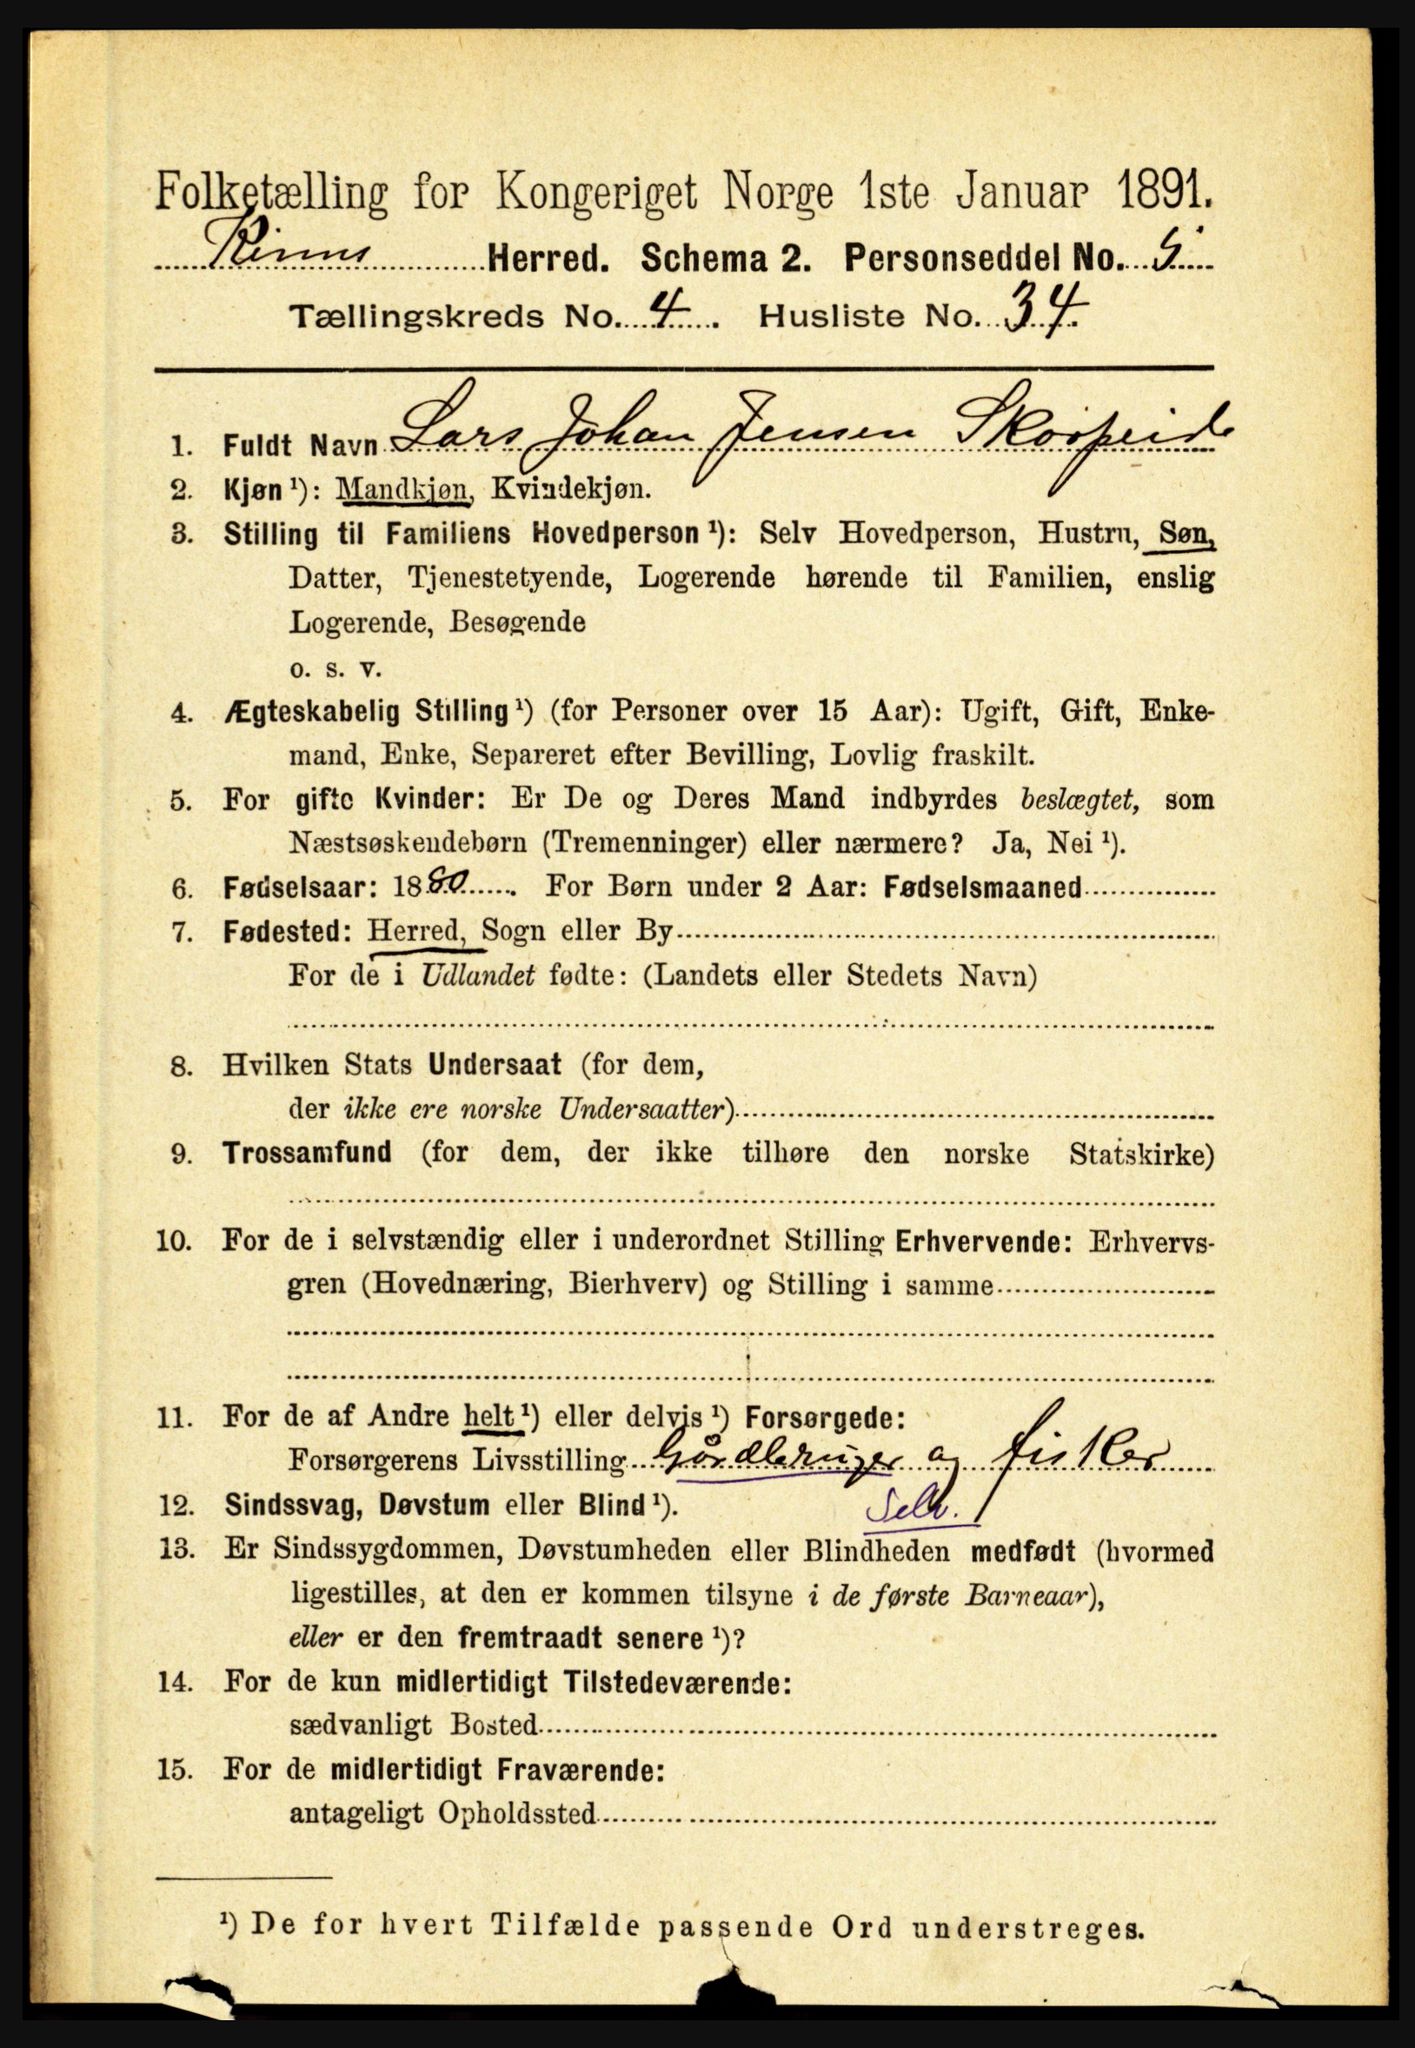 Folketælling for Kongeriget Norge 1ste Januar 1891.
Kinns Herred. Schema 2. Personseddel No. 5
Tællingskreds No. 4. Husliste No. 34.
1. Fuldt Navn Lars Johan Jensen Skorpeide
2. Kjøn ¹): Mandkjøn, Kvindekjøn.
3. Stilling til Familiens Hovedperson ¹): Selv Hovedperson, Hustru, Søn,
Datter, Tjenestetyende, Logerende hørende til Familien, enslig
Logerende, Besøgende
o. s. v.
4. Ægteskabelig Stilling ¹) (for Personer over 15 Aar): Ugift, Gift, Enke-
mand, Enke, Separeret efter Bevilling, Lovlig fraskilt.
5. For gifte Kvinder: Er De og Deres Mand indbyrdes beslægtet, som
Næstsøskendebørn (Tremenninger) eller nærmere? Ja, Nei ¹).
6. Fødselsaar: 1880. For Børn under 2 Aar: Fødselsmaaned
7. Fødested: Herred, Sogn eller By
For de i Udlandet fødte: (Landets eller Stedets Navn)
8. Hvilken Stats Undersaat (for dem,
der ikke ere norske Undersaatter)
9. Trossamfund (for dem, der ikke tilhøre den norske Statskirke)
10. For de i selvstændig eller i underordnet Stilling Erhvervende: Erhvervs-
gren (Hovednæring, Bierhverv) og Stilling i samme
11. For de af Andre helt ¹) eller delvis ¹) Forsørgede:
Forsørgerens Livsstilling Gårdbruger og fisker
12. Sindssvag, Døvstum eller Blind ¹). Selv.
13. Er Sindssygdommen, Døvstumheden eller Blindheden medfødt (hvormed
ligestilles, at den er kommen tilsyne i de første Barneaar),
eller er den fremtraadt senere ¹)?
14. For de kun midlertidigt Tilstedeværende:
sædvanligt Bosted
15. For de midlertidigt Fraværende:
antageligt Opholdssted
¹) De for hvert Tilfælde passende Ord understreges.